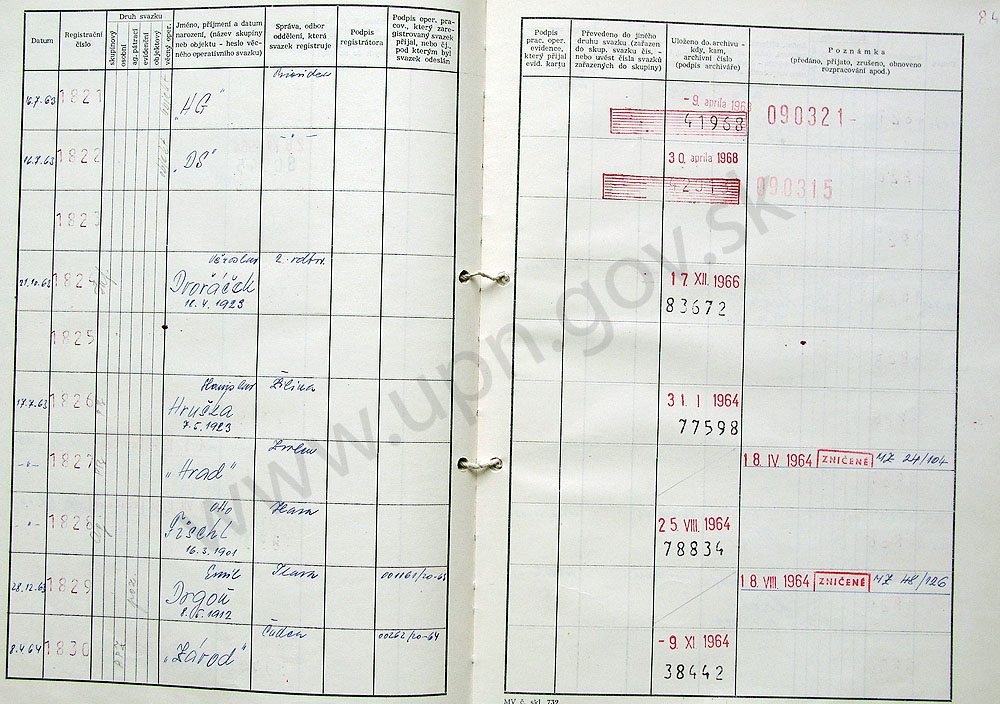 Datum
Registrační
číslo
Druh svazku
skupinový
osobní
ag. pátrací
evidenční
objektový
věcný oper.
Jméno, příjmení a datum
narození, (název skupiny
neb objektu - heslo věc-
ného operativního svazku)
Správa, odbor
oddělení, která
svazek registruje
Podpis
registrátora
Podpis oper. prac-
cov., který zare-
gistrovaný svazek
přijal, nebo čj.,
pod kterým byl
svazek odeslán
16.7.63 1821 „HG"
16.7.63 1822 „DS"
1823
21.10.63 1824 Dvořáček 2. odbor.
18.4.1923
1825
17.7.63 1826 Žilina
Hruška
7.5.1923
-"- 1827 „Hrad" Zvolen
-"- 1828 Otto
16.3.1901
28.12.63 1829 Emil Ilava
Drgoň
1912
8.4.64 1830 „Závod" Čadca 00262/20-64
84
Podpis
prac. oper.
evidence,
který přijal
evid. kartu
Převedeno do jiného
druhu svazku (zařazen
do skup. svazku čís. -
nebo uvést čísla svazků
zařazených do skupiny)
Uloženo do archivu -
kdy, kam,
archivní číslo
(podpis archiváře)
Poznámka
(předáno, přijato, zrušeno, obnoveno
rozpracování apod.)
- 9. apríla 1968
41968 090321-
30. apríla 1968
090315
17. XII. 1966
83672
31. I 1964
77598
18. IV. 1964 ZNIČENÉ MZ 24/104
25. VIII. 1964
78834
18. VIII. 1964 ZNIČENÉ MZ 48/126
-9. XI 1964
38442
MV č. skl. 732
www.upn.gov.sk